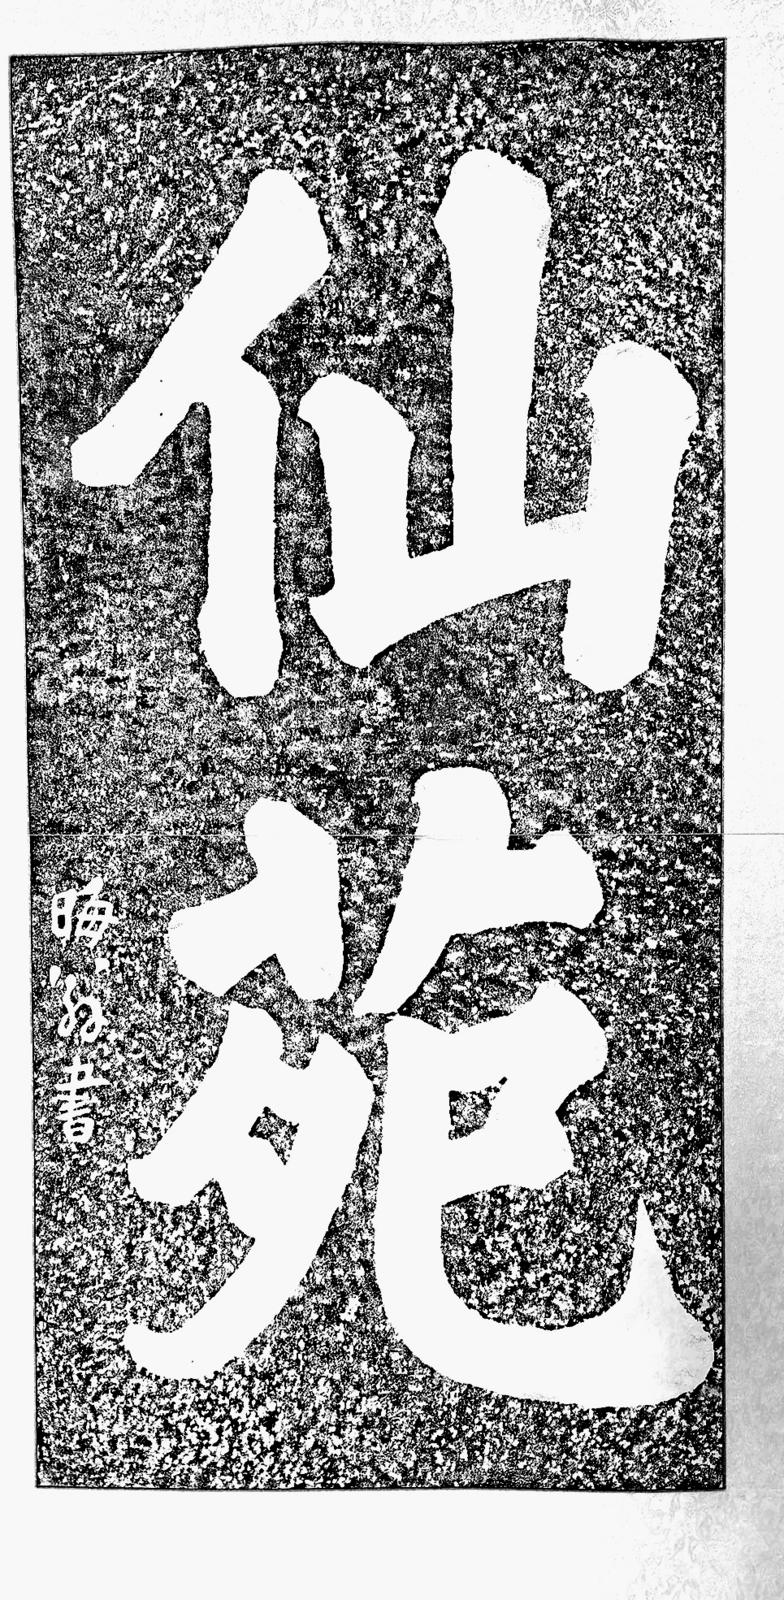 仙苑
晦翁書